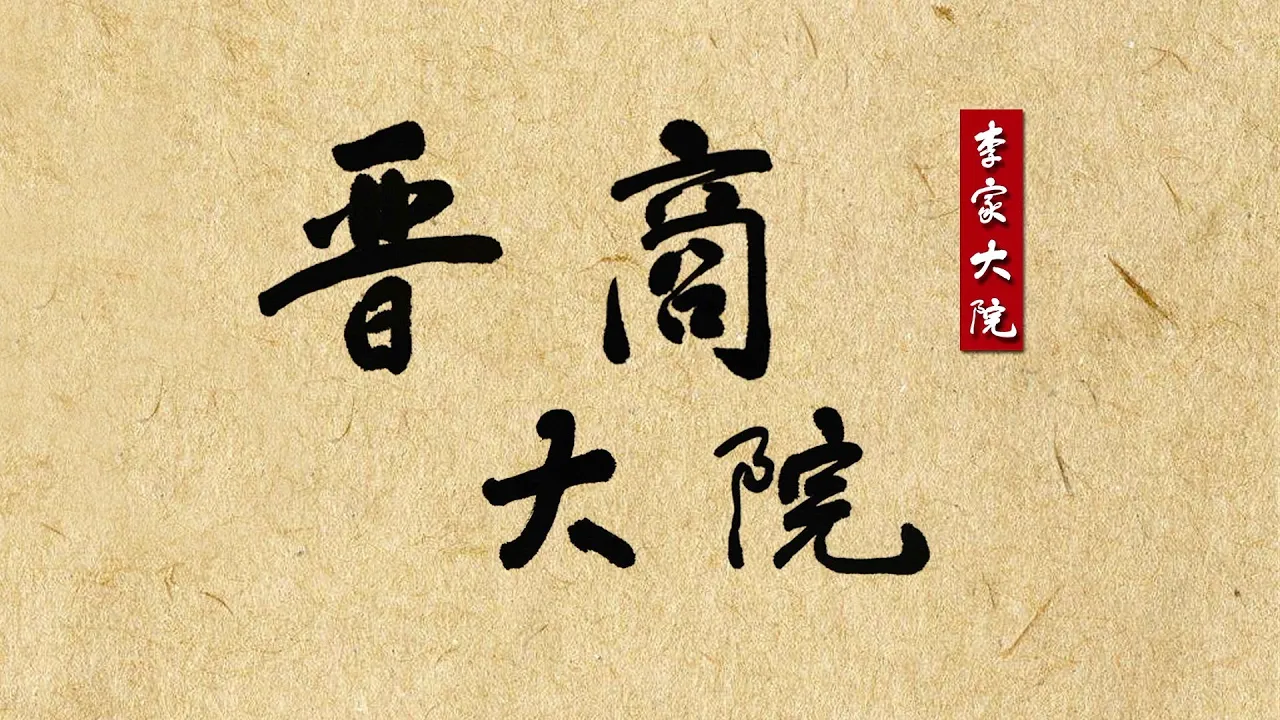 晋商
大院
李家大院